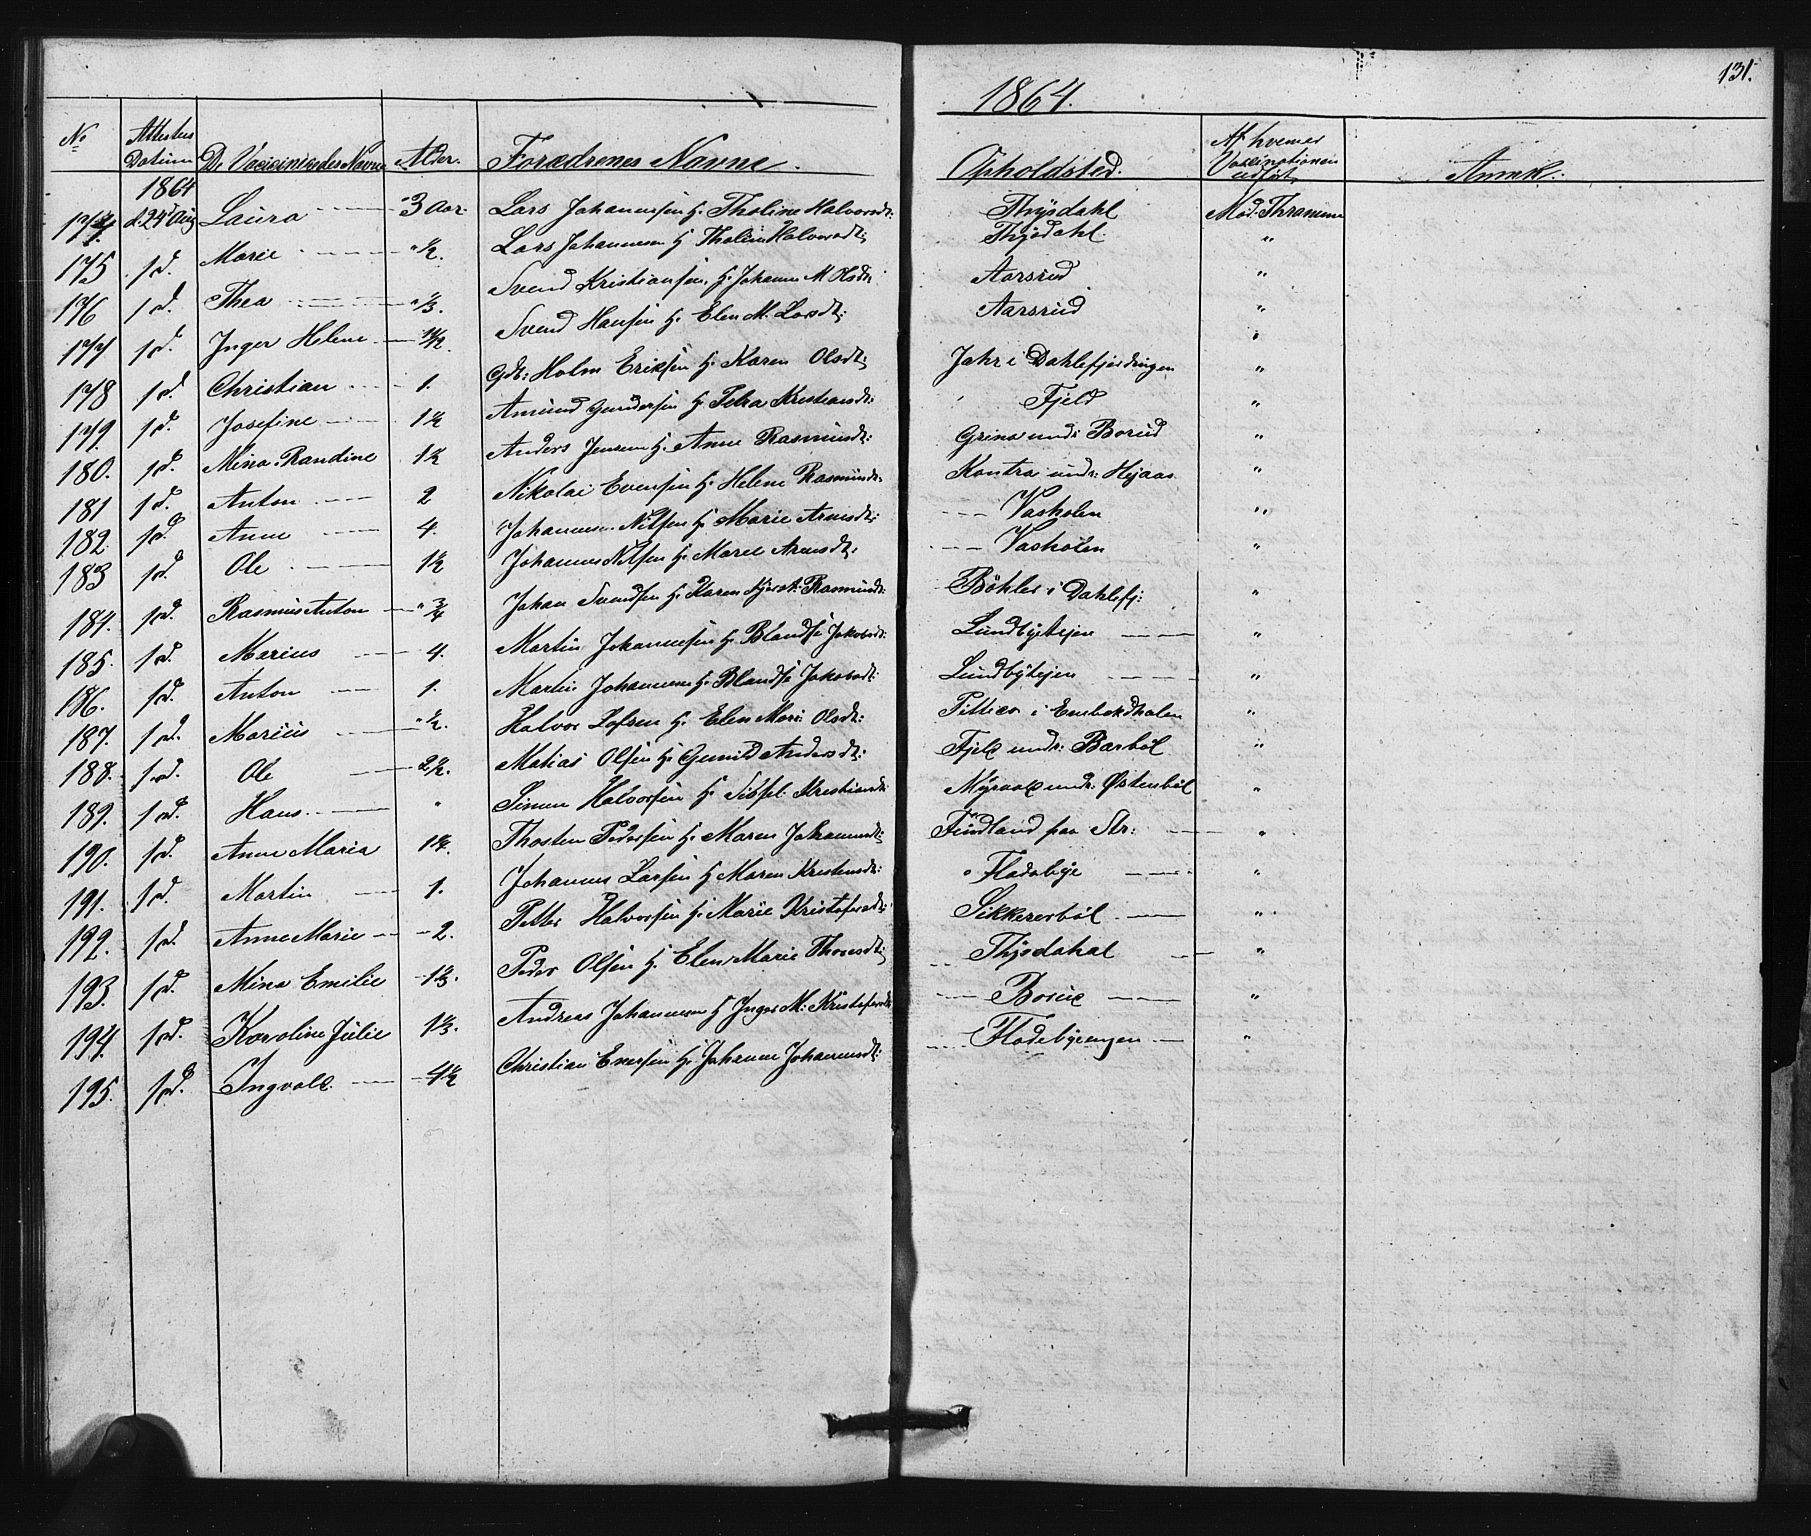 131.
1864.
No Attestens Datum De Vaccineredes Navne Alder. Forældrenes Navne. Opholdsted. Af hvem Vaccinationen udført Anmk:
1864
174. d. 24d Aug Laura 3 Aar. Lars Johannesen H. Tholine Halvorsdt: Thysdahl Mad. Thranum
175 id. Marie " ½. Lars Johannesen H. Tholine Halvorsdt: Thysdahl "
176 id. Thea " ⅓. Svend Kristiansen H. Johanne M. Olsdt: Aarsrud "
177 id. Inger Helene 1½. Svend Hansen H. Elen M. Larsdt: Aarsrud "
178 id. Christian 1. Gdb: Holm Eriksen H. Karen Olsdt: Jahr i Dahlefjerdingen "
179. id. Josefine 1½ Amund Gundersen H. Petra Kristiansdt: Fjeld "
180. id. Mina Randine 1½ Anders Jensen H. Anne Rasmusdt: Grina und: Borud "
181 id. Anton 2 Nikolai Evensen H. Helene Rasmusdt: Kontra und: Hejaas "
182. id. Anne 4. Johannes Nilsen H. Marie Arnesdt: Vasholen "
183 id. Ole 1½ Johannes Nilsen H. Marie Arnesdt: Vasholen "
184. id. Rasmus Anton " ¾ Johan Svendsen H. Karen Rasmusdt: Böhler i Dahlefj: "
185. id. Marius 4. Martin Johannesen H. Blandse Jakobsdt: Lundbyejen "
186. id. Anton 1. Martin Johannesen H. Blandse Jakobsdt: Lundbyejen "
187. id. Marius " ½. Halvor Lofsen H. Elen Marie Olsdt: i Enebakdhalen "
188. id. Ole 2½. Matias Olsen H. Gunild Andersdt: Fjeld und: Barböl "
189. id. Hans " Simen Halvorsen H. Sissel Kristiansdt: Myrvold und: Østenböl "
190. id. Anne Maria 1½. Thosten Pedersen H. Maren Johannesdt: Findland paa Str: "
191. id. Martin 1. Johannes Larsen H. Maren Kristensdt: Fladebye "
192. id. Anne Marie 2. Petter Halvorsen H. Marie Kristofersdt: Sikkereböl "
193. id. Mina Emilie 1⅓. Peder Olsen H. Elen Marie Thoresdt: Thysdahal "
194. id. Karoline Julie 1⅓. Andreas Johannesen H. Inger M. Kristofersdt: Borud "
195. id. Ingvold 4½ Christian Evensen H. Johanne Johannesdt: Fladebyeengen "